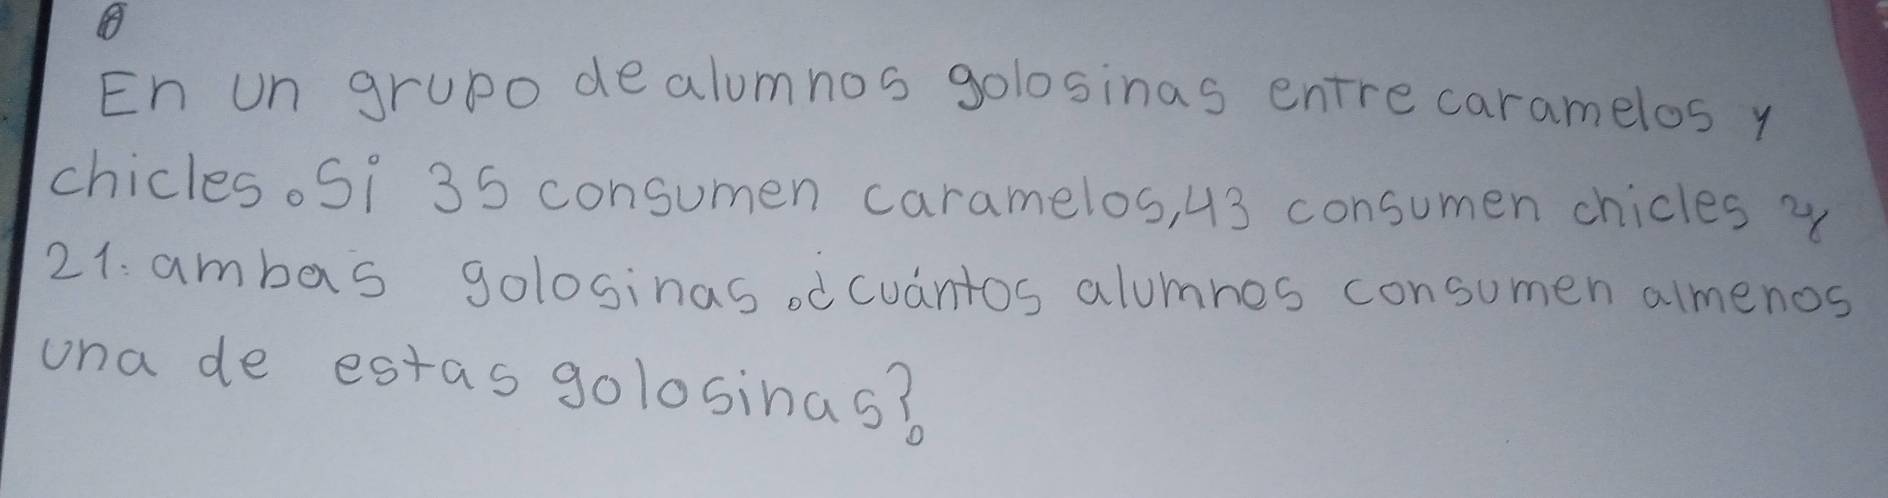 En un grupo de alumnos golosinas entre caramelos y
chicles. Si 35 consumen caramelos, 43 consumen chicles y
21. ambas golosinas. ¿cuántos alumnos consumen almenos
una de estas golosinas?